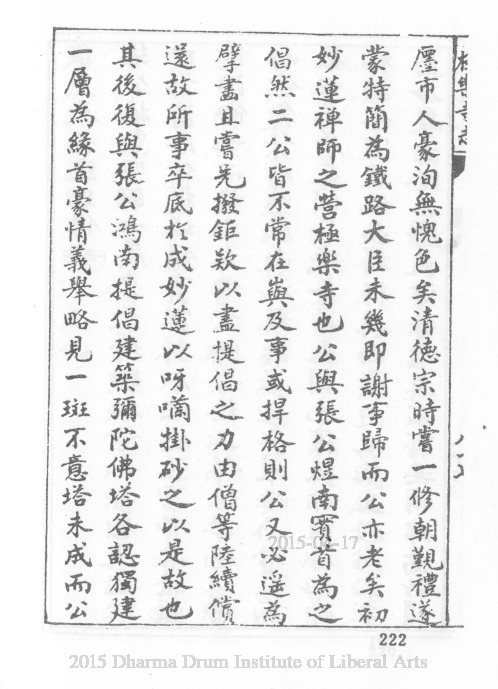 極樂寺志
廛市人豪洵無愧色矣清德宗時嘗一修朝覲禮遂
蒙特簡為鐵路大臣未幾即謝事歸而公亦老矣初
妙蓮禪師之營極樂寺也公與張公煜南實首為之
倡然二公皆不常在嶼及事或捍格則公又必遙為
擘畫且嘗先撥鉅欵以盡提倡之力由僧等陸續償
還故所事卒底於成妙蓮以呀囒掛砂之以是故也
其後復與張公鴻南提倡建築彌陀佛塔各認獨建
一層為緣首豪情義舉略見一斑不意塔未成而公
222
2015 Dharma Drum Institute of Liberal Arts